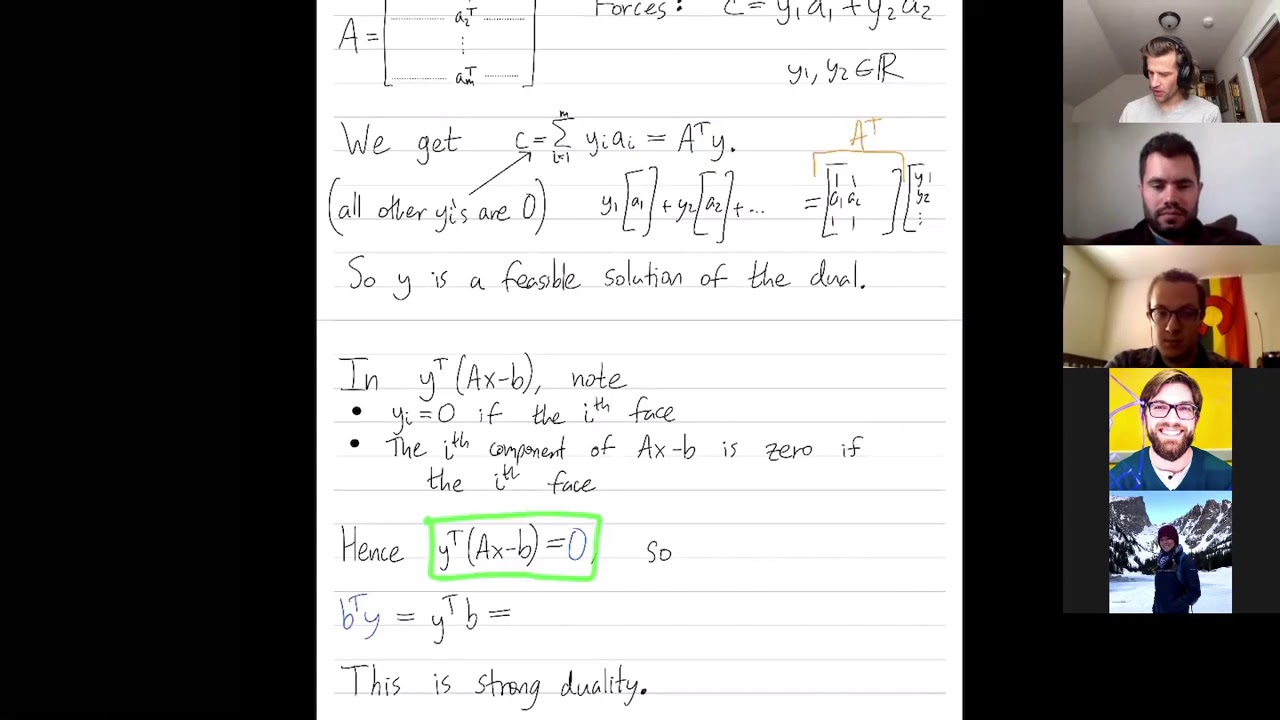 Forces: c = y₁a₁ + y₂a₂
A = [ a₂ᵀ ⋮ aₘᵀ ]
y₁, y₂ ∈ ℝ
We get c = ∑ᵢ₌₁ᵐ yᵢaᵢ = Aᵀy.
Aᵀ
(all other yᵢ's are 0) y₁[a₁] + y₂[a₂] + ... = [a₁ a₂] [y₁ y₂ ⋮
So y is a feasible solution of the dual.
In yᵀ(Ax-b), note
• yᵢ=0 if the iᵗʰ face
• The iᵗʰ component of Ax-b is zero if
the iᵗʰ face
Hence yᵀ(Ax-b) = 0, so
bᵀy = yᵀb =
This is strong duality.